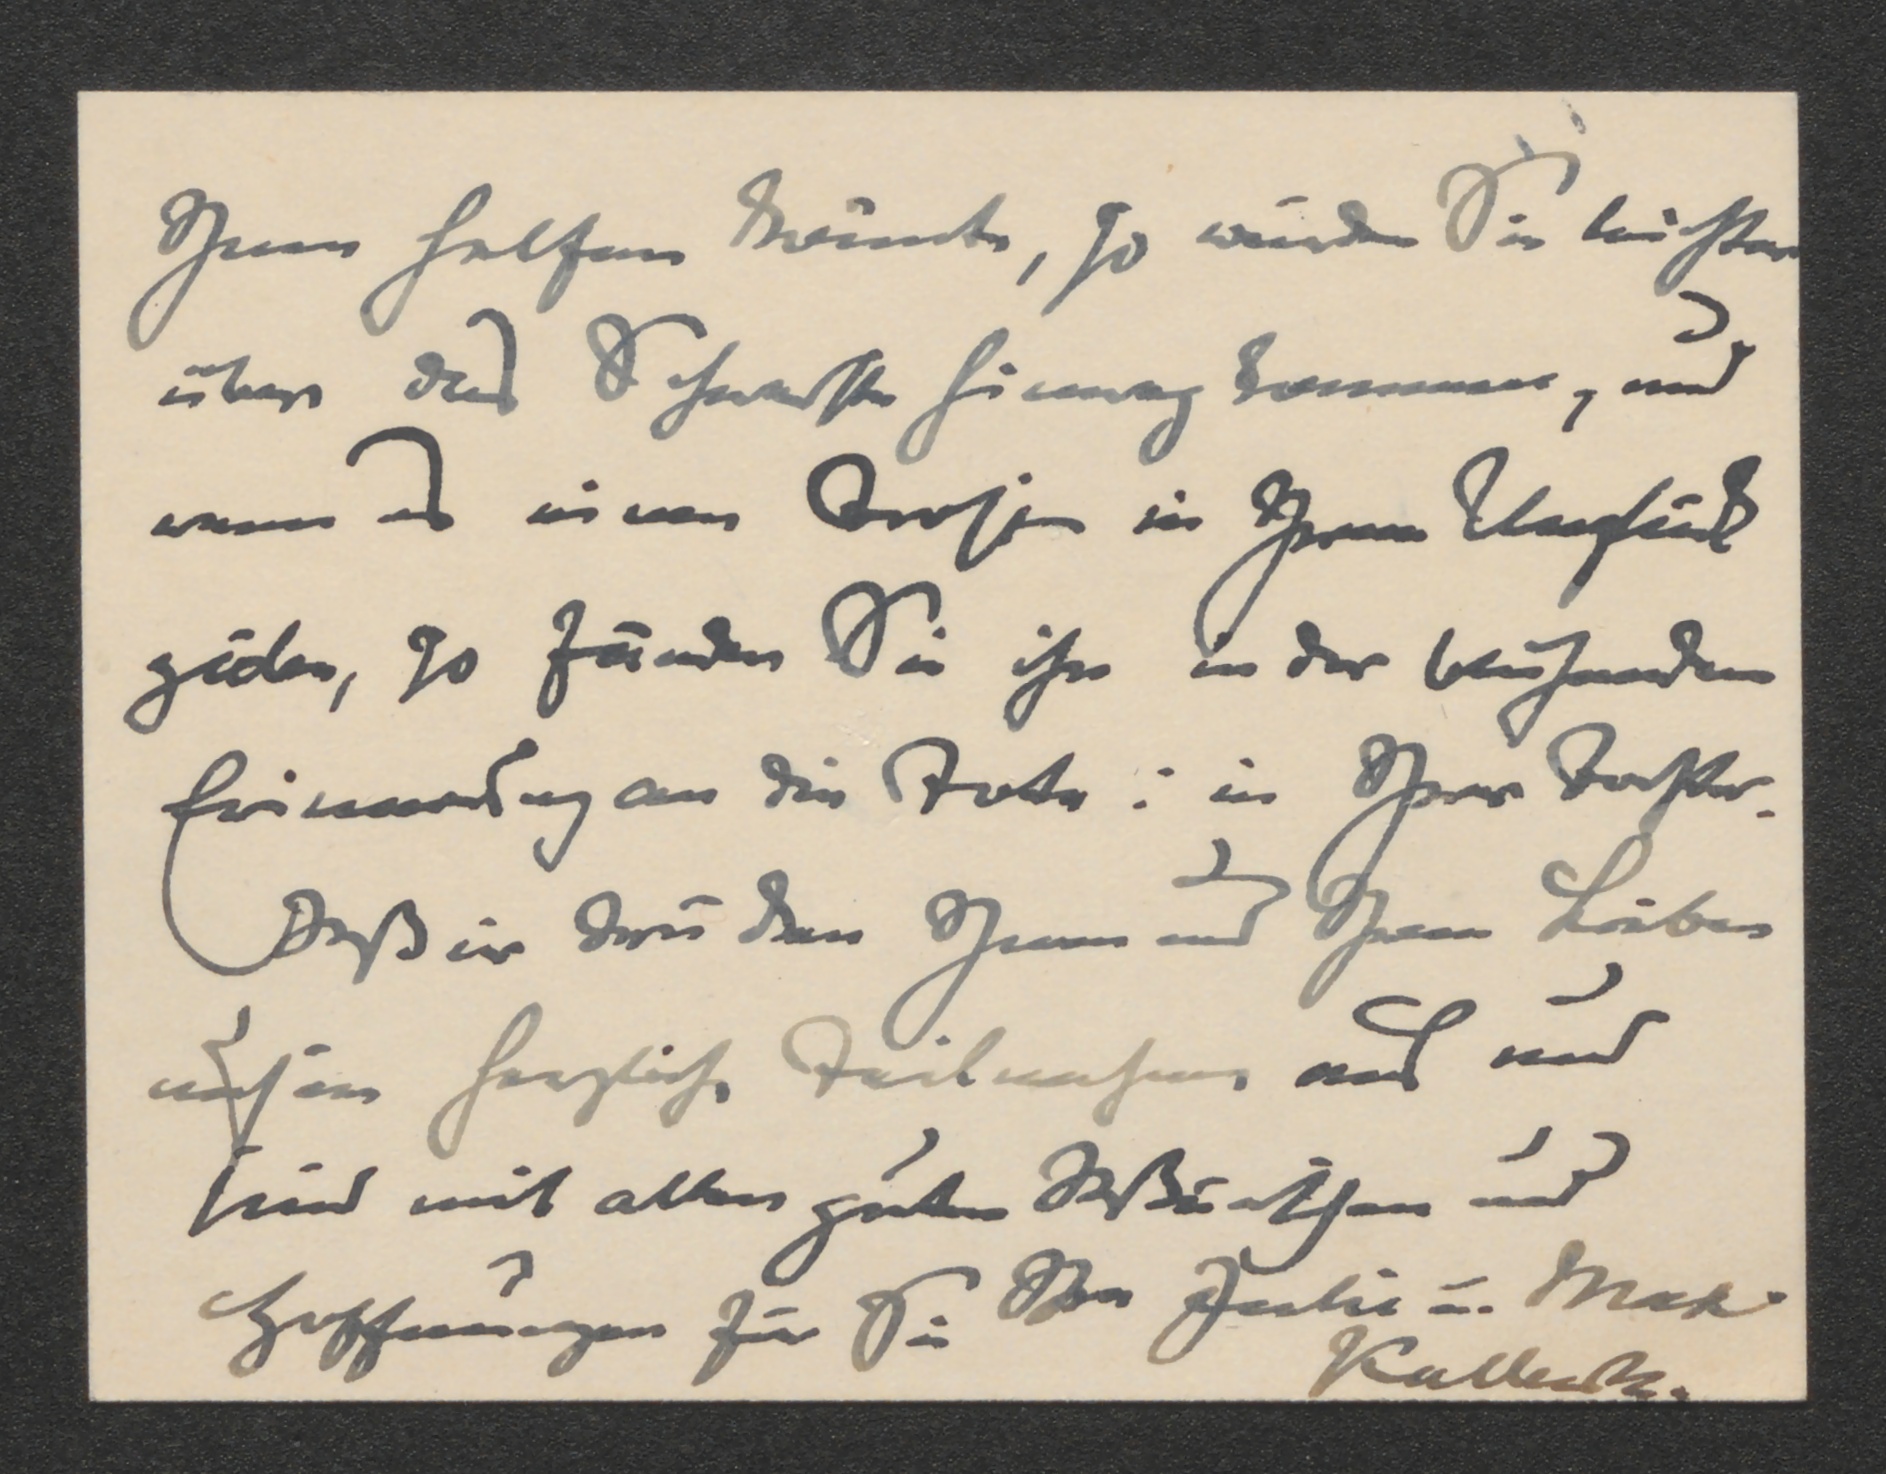 Ihnen helfen könnte, so würden Sie leichter
über das Schwerste hinweg kommen, und
wenn es einen Trost in Ihrem Unglück
gäbe, so fänden Sie ihn in der blühenden
Erinnerung an die Tote: in Ihrer Tochter.
Wir drücken Ihnen und Ihren Lieben
unsere herzliche Teilnahme aus und
sind mit allen guten Wünschen und
Hoffnungen für Sie Ihre Julie u. Max
Kalbeck.